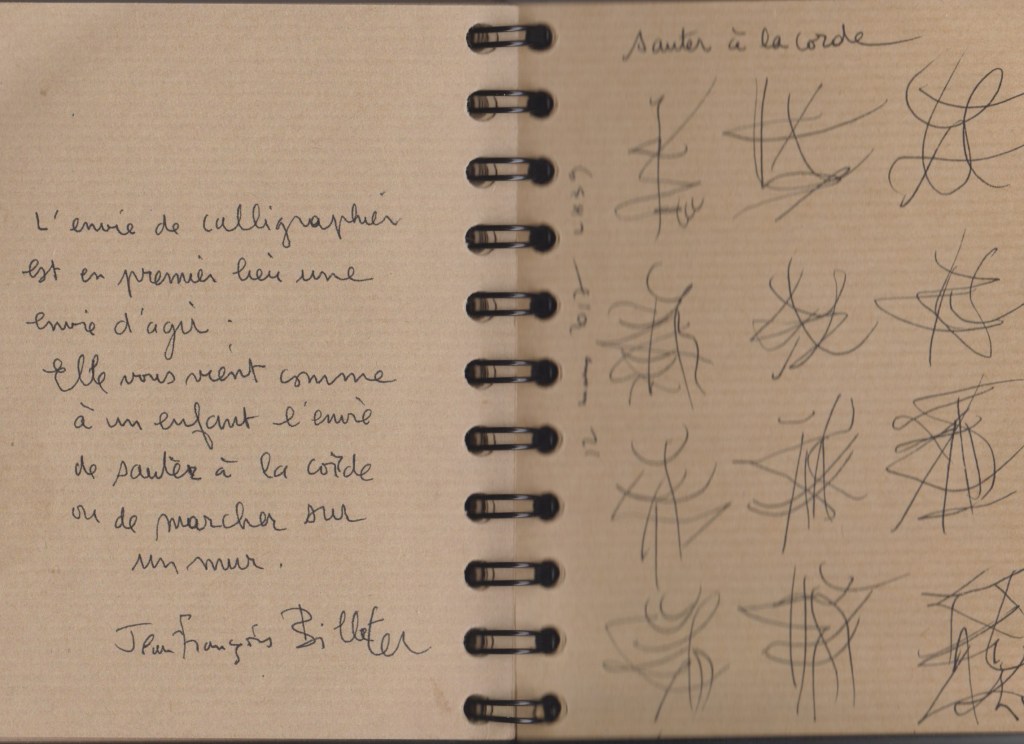 L'envie de calligraphier
est en premier lieu une
envie d'agir.
Elle vous vient comme
à un enfant l'envie
de sauter à la corde
ou de marcher sur
un mur.
Jean François Billeter
sauter à la corde